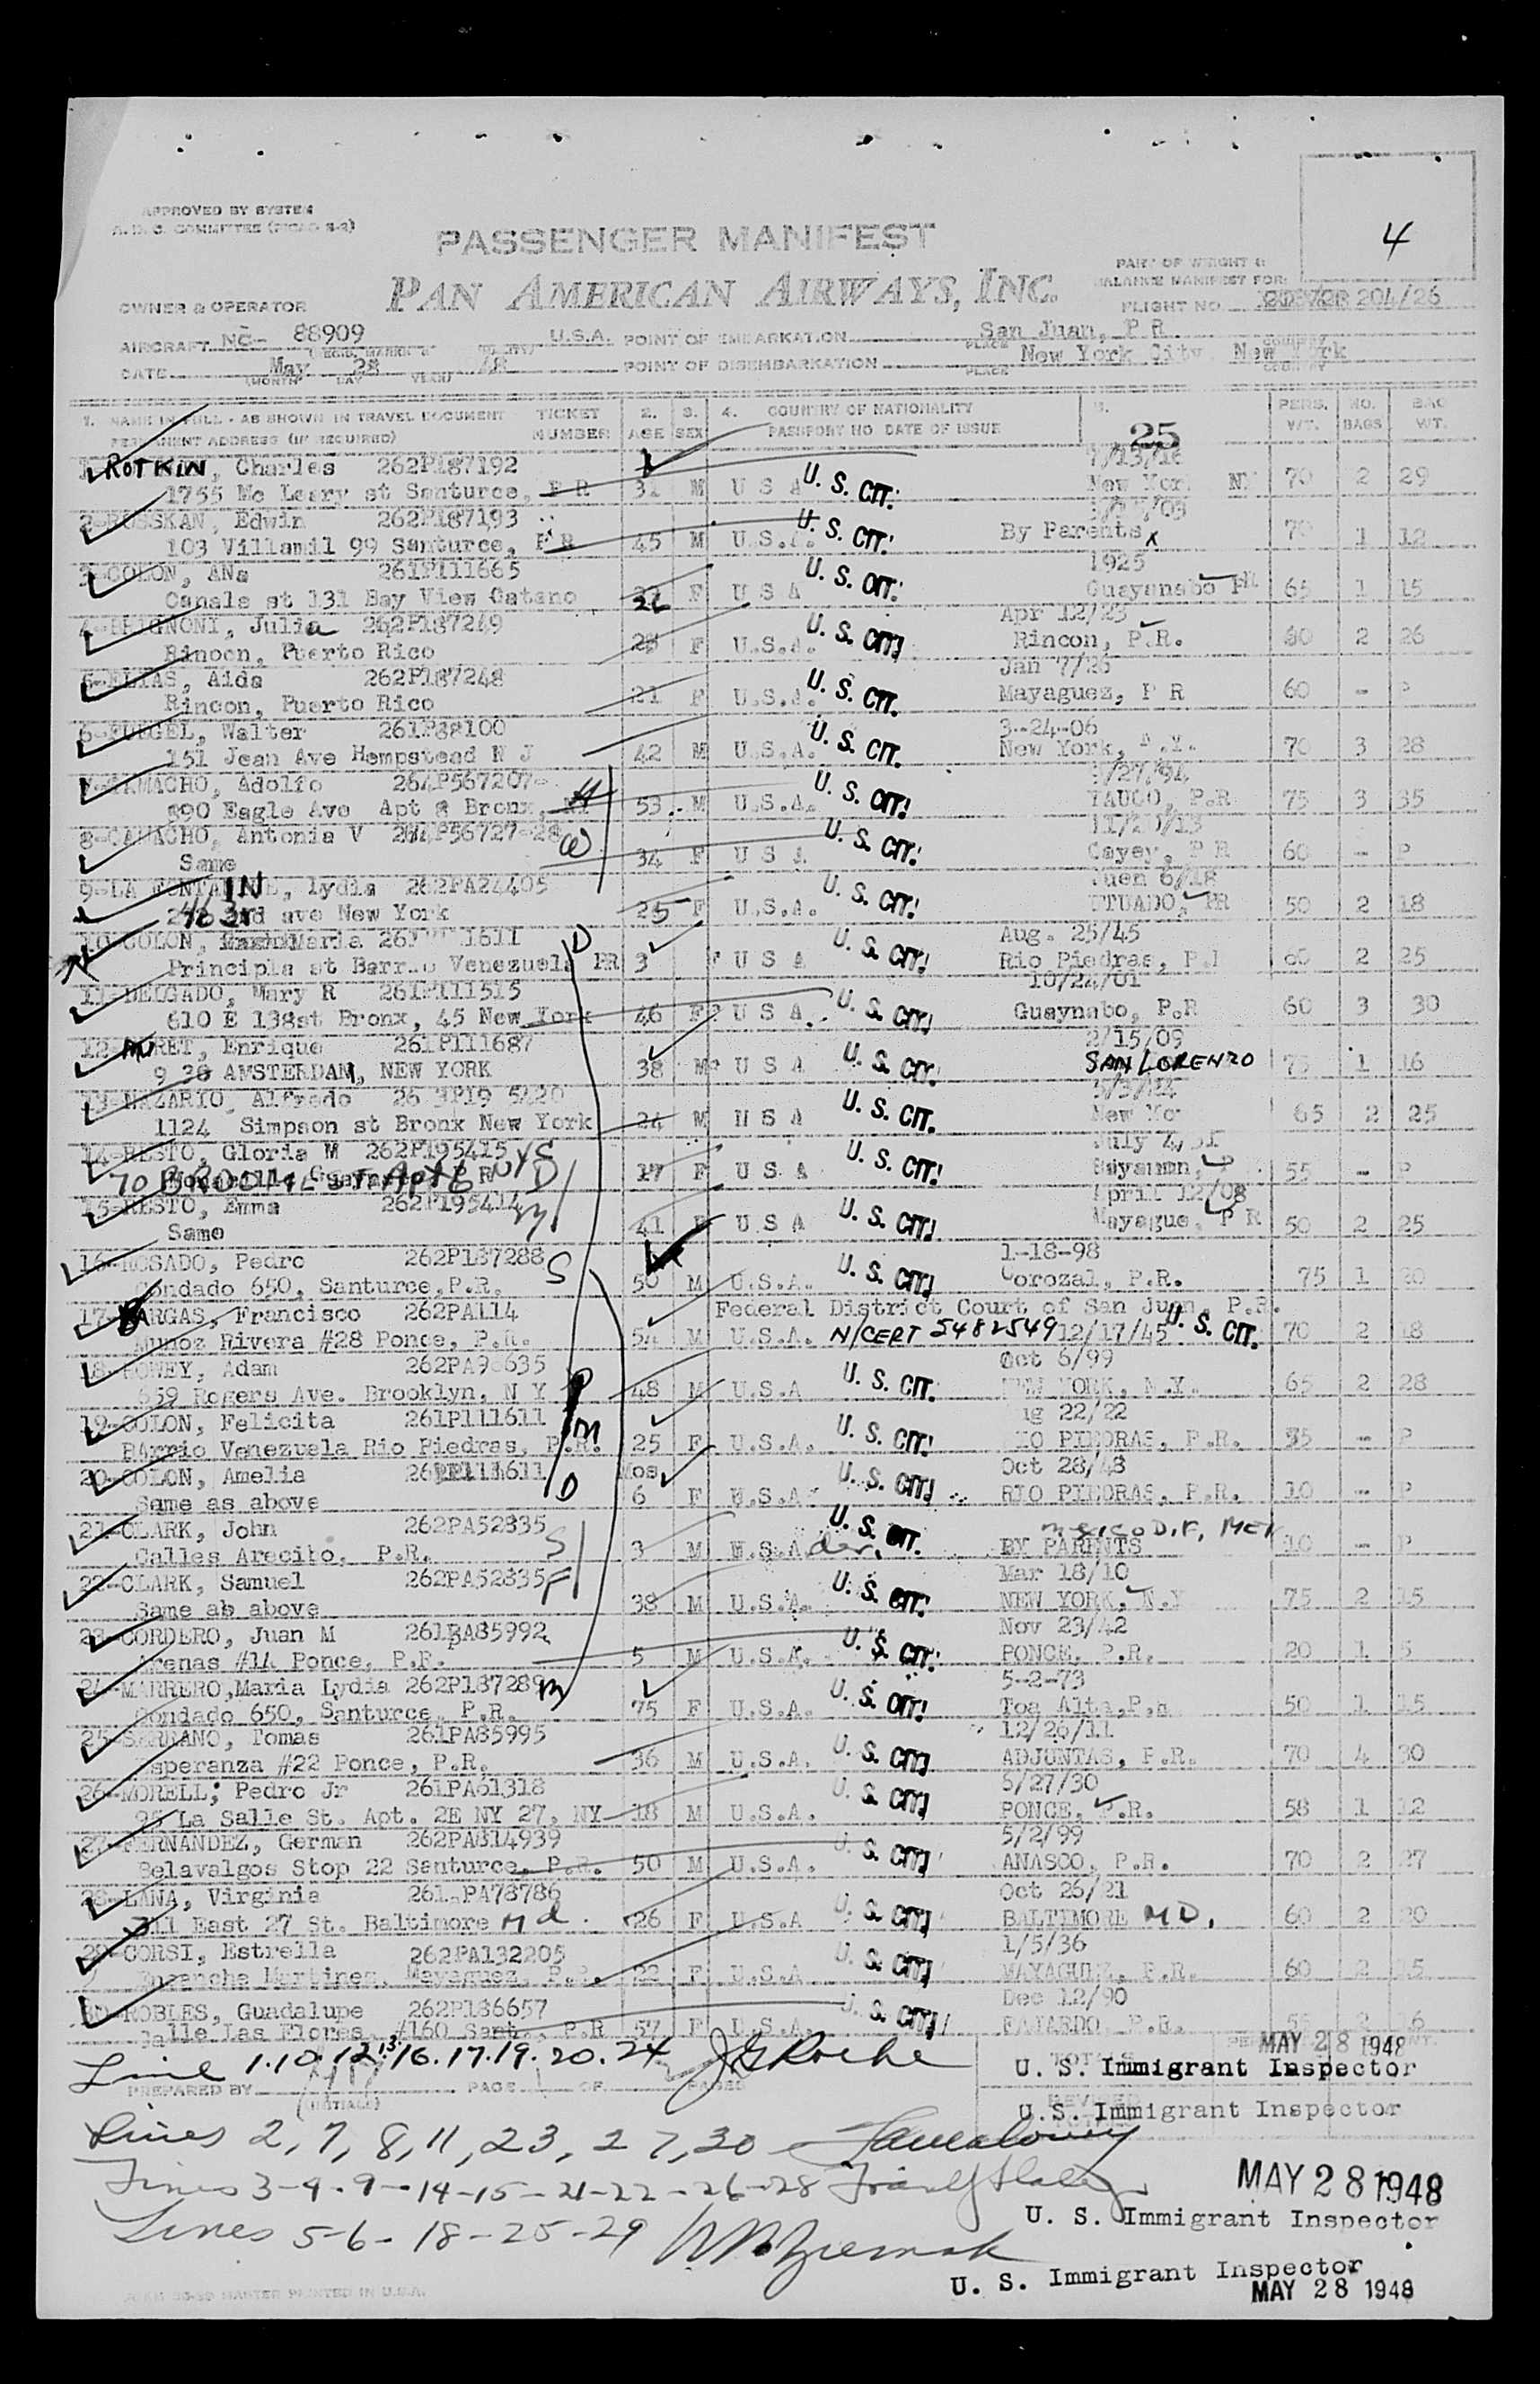 4
APPROVED BY SYSTEM
PASSENGER MANIFEST
PAN AMERICAN AIRWAYS, INC.
PART OF WEIGHT &
BALANCE MANIFEST FOR:
OWNER & OPERATOR
FLIGHT NO. 204/26
AIRCRAFT NC- 88909 U.S.A. POINT OF EMBARKATION San Juan, P R
DATE May 28 48 POINT OF DISEMBARKATION New York City, New York
(MONTH DAY YEAR) PLACE COUNTRY
1. NAME IN FULL - AS SHOWN IN TRAVEL DOCUMENT TICKET 2. 3. 4. COUNTRY OF NATIONALITY 5. PERS. NO. BAG
PERMANENT ADDRESS (IF REQUIRED) NUMBER AGE SEX PASSPORT NO. DATE OF ISSUE 25 WT. BAGS WT.
1 ROTKIN, Charles 262P187192
1755 Mc Leary st Santurce, P R 31 M U S A U. S. CIT. New Yor NY 70 2 29
2- Edwin 262P187193
103 Villamil 99 Santurce, P R 45 M U.S.A. U. S. CIT. By Parents 70 1 12
3-COLON, ANa 261P111665 1925
Canals st 131 Bay View Catano F U S A U. S. CIT. Guaynabo PR 65 1 15
4-BRIGNONI, Julia 262P187249 Apr 12/23
Rincon, Puerto Rico 25 F U.S.A. U. S. CIT. Rincon, P.R. 60 2 26
5-ELIAS, Aida 262P187248 Jan 7/26
Rincon, Puerto Rico 21 F U.S.A. U. S. CIT. Mayaguez, P R 60 - P
6- Walter 261P88100 3-24-06
151 Jean Ave Hempstead N J 42 M U.S.A. U. S. CIT. New York, N.Y. 70 3 28
7-CAMACHO, Adolfo 264P567207- H
890 Eagle Ave Apt 8 Bronx, 53 M U.S.A. U. S. CIT. YAUCO, P.R 75 3 35
8-CAMACHO, Antonia V P56727-28 W 11/ /13
Same 34 F U S A U. S. CIT. Cayey, P R 60 - P
9-LA FONTAINE, lydia 262PA24405 Juen 6/18
2nd ave New York 25 F U.S.A. U. S. CIT. UTUADO, PR 50 2 18
10-COLON, Maria 261 1611 D Aug. 25/45
Principla st Barrio Venezuela PR 3 F U S A U. S. CIT. Rio Piedras, P.R 60 2 25
11-DELGADO, Mary R 261P111515 10/24/01
610 E 138st Bronx, 45 New York 46 F U S A U. S. CIT. Guaynabo, P.R 60 3 30
12- Enrique 261P111687 2/15/09
AMSTERDAM, NEW YORK 38 M U S A U. S. CIT. SAN LORENZO 75 1 16
13-NAZARIO, Alfredo
1124 Simpson st Bronx New York 24 M U S A U. S. CIT. New Yor 65 2 25
14-RESTO, Gloria M 262P195415 July 4,
70 BROOME ST Apt 6 NY D 17 F U S A U. S. CIT. Bayamon, P 55 - P
15-RESTO, Emma 262P195414 M April 12/08
Same 41 F U S A U. S. CIT. Mayague, P R 50 2 25
16-ROSADO, Pedro 262P187288 S 1-18-98
Condado 650, Santurce, P.R. 50 M U.S.A. U. S. CIT. Corozal, P.R. 75 1 20
17-VARGAS, Francisco 262PA114 Federal District Court of San Juan, P.R.
Munoz Rivera #28 Ponce, P.R. 54 M U.S.A. N/CERT 5482549 12/17/45 U. S. CIT. 70 2 18
18- Adam Oct 6/99
659 Rogers Ave. Brooklyn, N Y 48 M U.S.A U. S. CIT. NEW YORK, N.Y. 65 2 28
19-COLON, Felicita 261P111611 M Aug 22/22
BArrio Venezuela Rio Piedras, P.R. 25 F U.S.A. U. S. CIT. RIO PIEDRAS, P.R. 35 - P
20-COLON, Amelia Mos Oct 28/48
Same as above D 6 F U.S.A. U. S. CIT. RIO PIEDRAS, P.R. 10 - P
21-CLARK, John 262PA52835 S Mexico D.F, MEX
Calles Arecibo, P.R. 3 M U.S.A der. U. S. CIT. BY PARENTS 10 - P
22-CLARK, Samuel 262PA52835 F Mar 18/10
Same ab above 38 M U.S.A. U. S. CIT. NEW YORK, N.Y 75 2 15
23-CORDERO, Juan M 261PA85992 Nov 23/42
Arenas #14 Ponce, P.R. 5 M U.S.A. U. S. CIT. PONCE, P.R. 20 1 5
24-MARRERO,Maria Lydia 262P187289 M 5-2-73
Condado 650, Santurce, P.R. 75 F U.S.A. U. S. CIT. Toa Alta,P.R 50 1 15
25-SERRANO, Tomas 261PA85995 12/26/11
Esperanza #22 Ponce, P.R. 36 M U.S.A. U. S. CIT. ADJUNTAS, P.R. 70 4 30
26-MORELL, Pedro Jr 261PA61318 5/27/30
25 La Salle St. Apt. 2E NY 27, NY 18 M U.S.A. U. S. CIT. PONCE, P.R. 58 1 12
27-FERNANDEZ, German 262PA814939 5/2/99
Belavalgos Stop 22 Santurce, P.R. 50 M U.S.A. U. S. CIT. ANASCO, P.R. 70 2 27
28-LANA, Virginia 261-PA78786 Oct 26/21
East 27 St. Baltimore Md. 26 F U.S.A U. S. CIT. BALTIMORE MD. 60 2 20
29-CORSI, Estrella 262PA132205 1/5/36
Ensanche Martinez, Mayaguez, P.R. 22 F U.S.A U. S. CIT. MAYAGUEZ, P.R. 60 2 15
30-ROBLES, Guadalupe 262P186657 Dec 12/90
Calle Las Flores, #160 Sant., P.R 57 F U.S.A. U. S. CIT. FAJARDO, P.R. 55 2 16
Line 1.10.12.13.16.17.19.20.24 J G Roche MAY 28 1948
TOTALS U. S. Immigrant Inspector
PREPARED BY PAGE OF PAGES
(INITIALS)
REVISED U.S. Immigrant Inspector
Lines 2, 7, 8, 11, 23, 27, 30
Lines 3-4-9-14-15-21-22-26-28 MAY 28 1948
U. S. Immigrant Inspector
Lines 5-6-18-25-29
U. S. Immigrant Inspector
MAY 28 1948
MASTER PRINTED IN U.S.A.